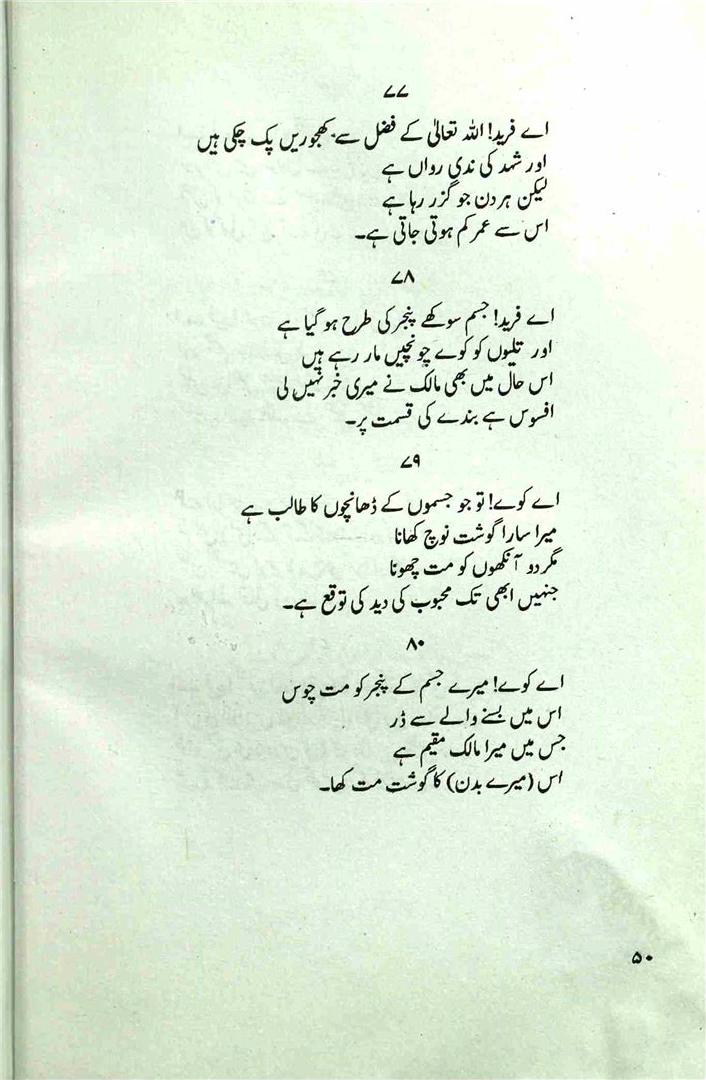 ۷۷
اے فرید! اللہ تعالیٰ کے فضل سے کھجوریں پک چکی ہیں
اور شہد کی ندی رواں ہے
لیکن ہر دن جو گزر رہا ہے
اس سے عمر کم ہوتی جاتی ہے۔
۷۸
اے فرید! جسم سوکھے پنجر کی طرح ہو گیا ہے
اور تلیوں کو کوے چونچیں مار رہے ہیں
اس حال میں بھی مالک نے میری خبر نہیں لی
افسوس ہے بندے کی قسمت پر۔
۷۹
اے کوے! تو جو جسموں کے ڈھانچوں کا طالب ہے
میرا سارا گوشت نوچ کھانا
مگر دو آنکھوں کو مت چھونا
جنہیں ابھی تک محبوب کی دید کی توقع ہے۔
۸۰
اے کوے! میرے جسم کے پنجر کو مت چوس
اس میں بسنے والے سے ڈر
جس میں میرا مالک مقیم ہے
اس (میرے بدن) کا گوشت مت کھا۔
۵۰